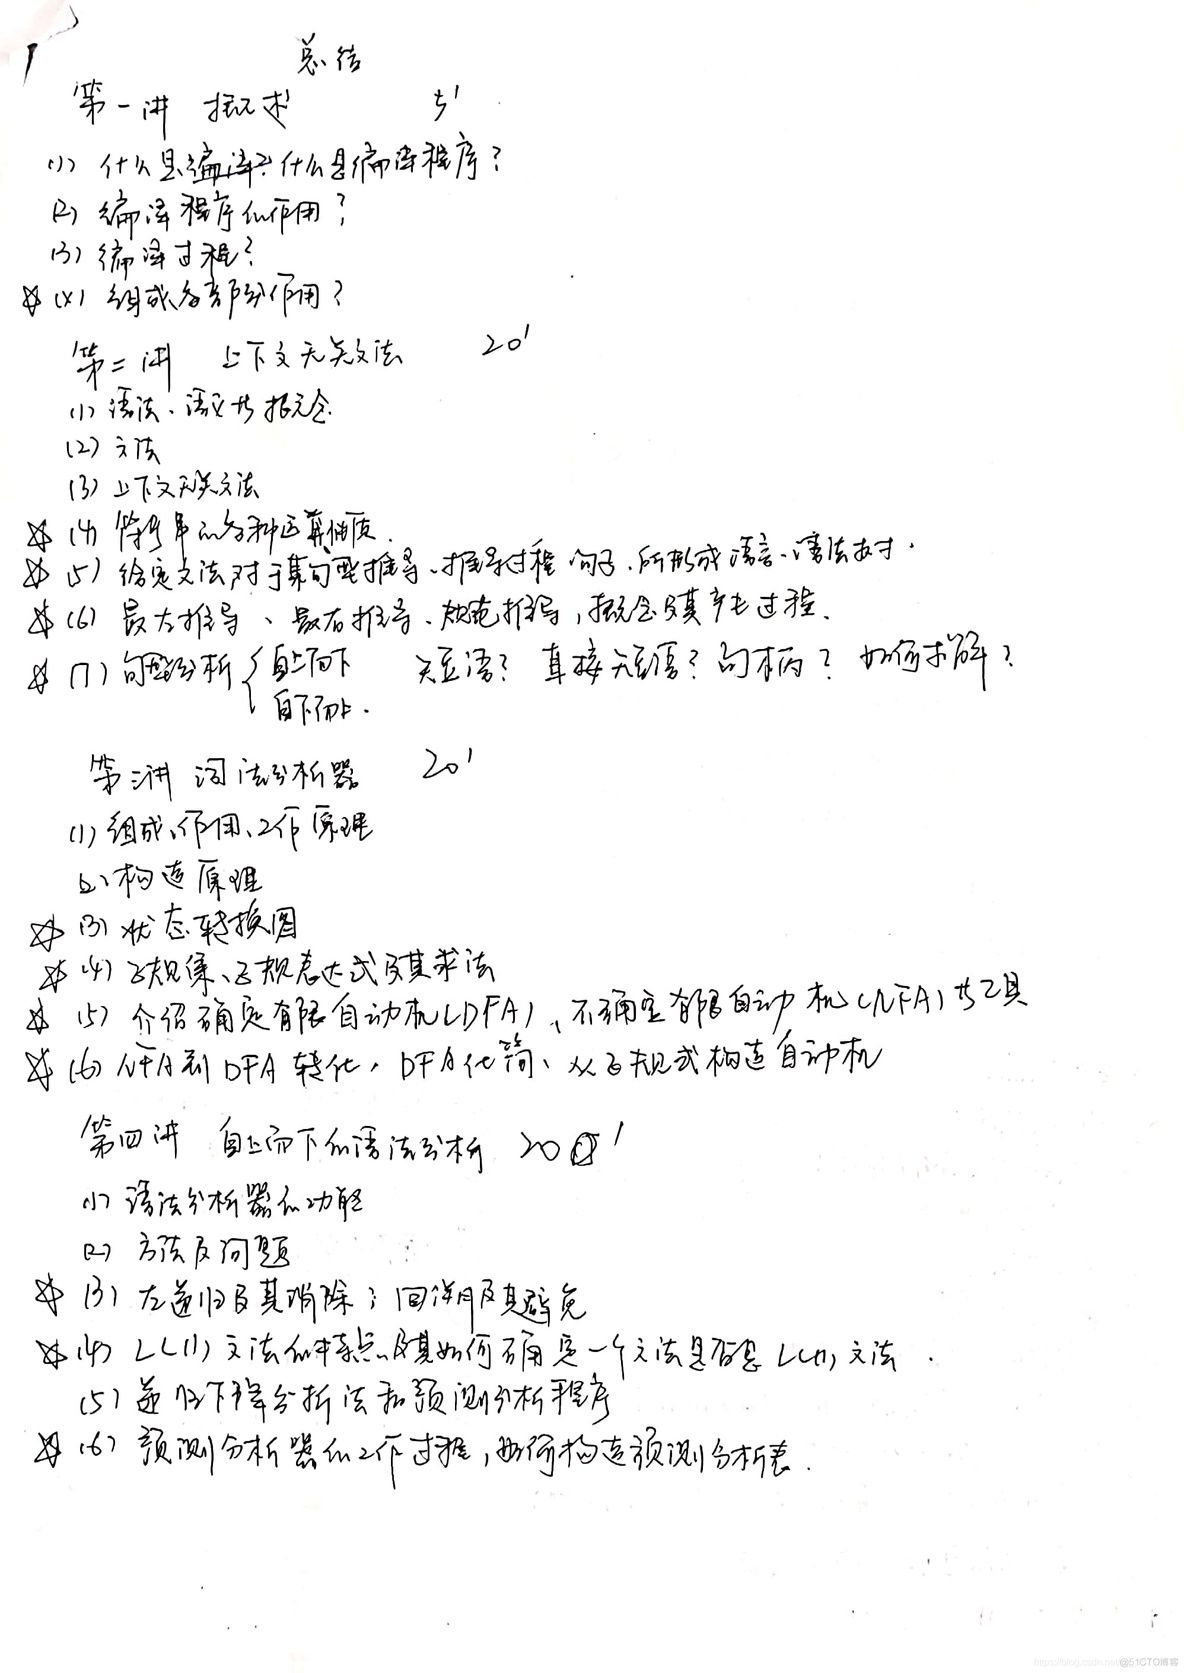 总结
第一讲 概述 5'
(1) 什么是编译?什么是编译程序?
(2) 编译程序的作用?
(3) 编译过程?
☆ (4) 组成各部分作用?
第二讲 上下文无关文法 20'
(1) 语法、语义等概念
(2) 文法
(3) 上下文无关文法
☆ (4) 符号串的各种运算性质.
☆ (5) 给定文法对于某句型推导、推导过程、句子、所形成语言、语法树.
☆ (6) 最左推导、最右推导、规范推导,概念及其产生过程.
☆ (7) 句型分析 { 自上而下 短语? 直接短语? 句柄? 如何求解?
自下而上.
第三讲 词法分析器 20'
(1) 组成、作用、工作原理
(2) 构造原理
☆ (3) 状态转换图
☆ (4) 正规集、正规表达式及其求法
☆ (5) 介绍确定有限自动机(DFA)、不确定有限自动机(NFA)等工具
☆ (6) NFA到DFA转化,DFA化简、从正规式构造自动机
第四讲 自上而下的语法分析 20'
(1) 语法分析器的功能
(2) 方法及问题
☆ (3) 左递归及其消除;回溯及其避免
☆ (4) LL(1)文法的特点及其如何确定一个文法是否是LL(1)文法.
(5) 递归下降分析法和预测分析程序
☆ (6) 预测分析器的工作过程,如何构造预测分析表.
https://blog.csdn.net @51CTO博客